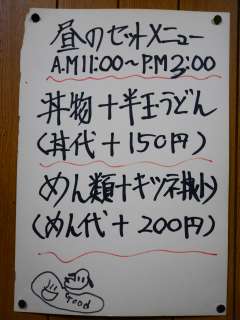 昼のセットメニュー
A.M 11:00～P.M 3:00
丼物＋半玉うどん
(丼代＋150円)
めん類＋キツネ丼小
(めん代＋200円)
Good